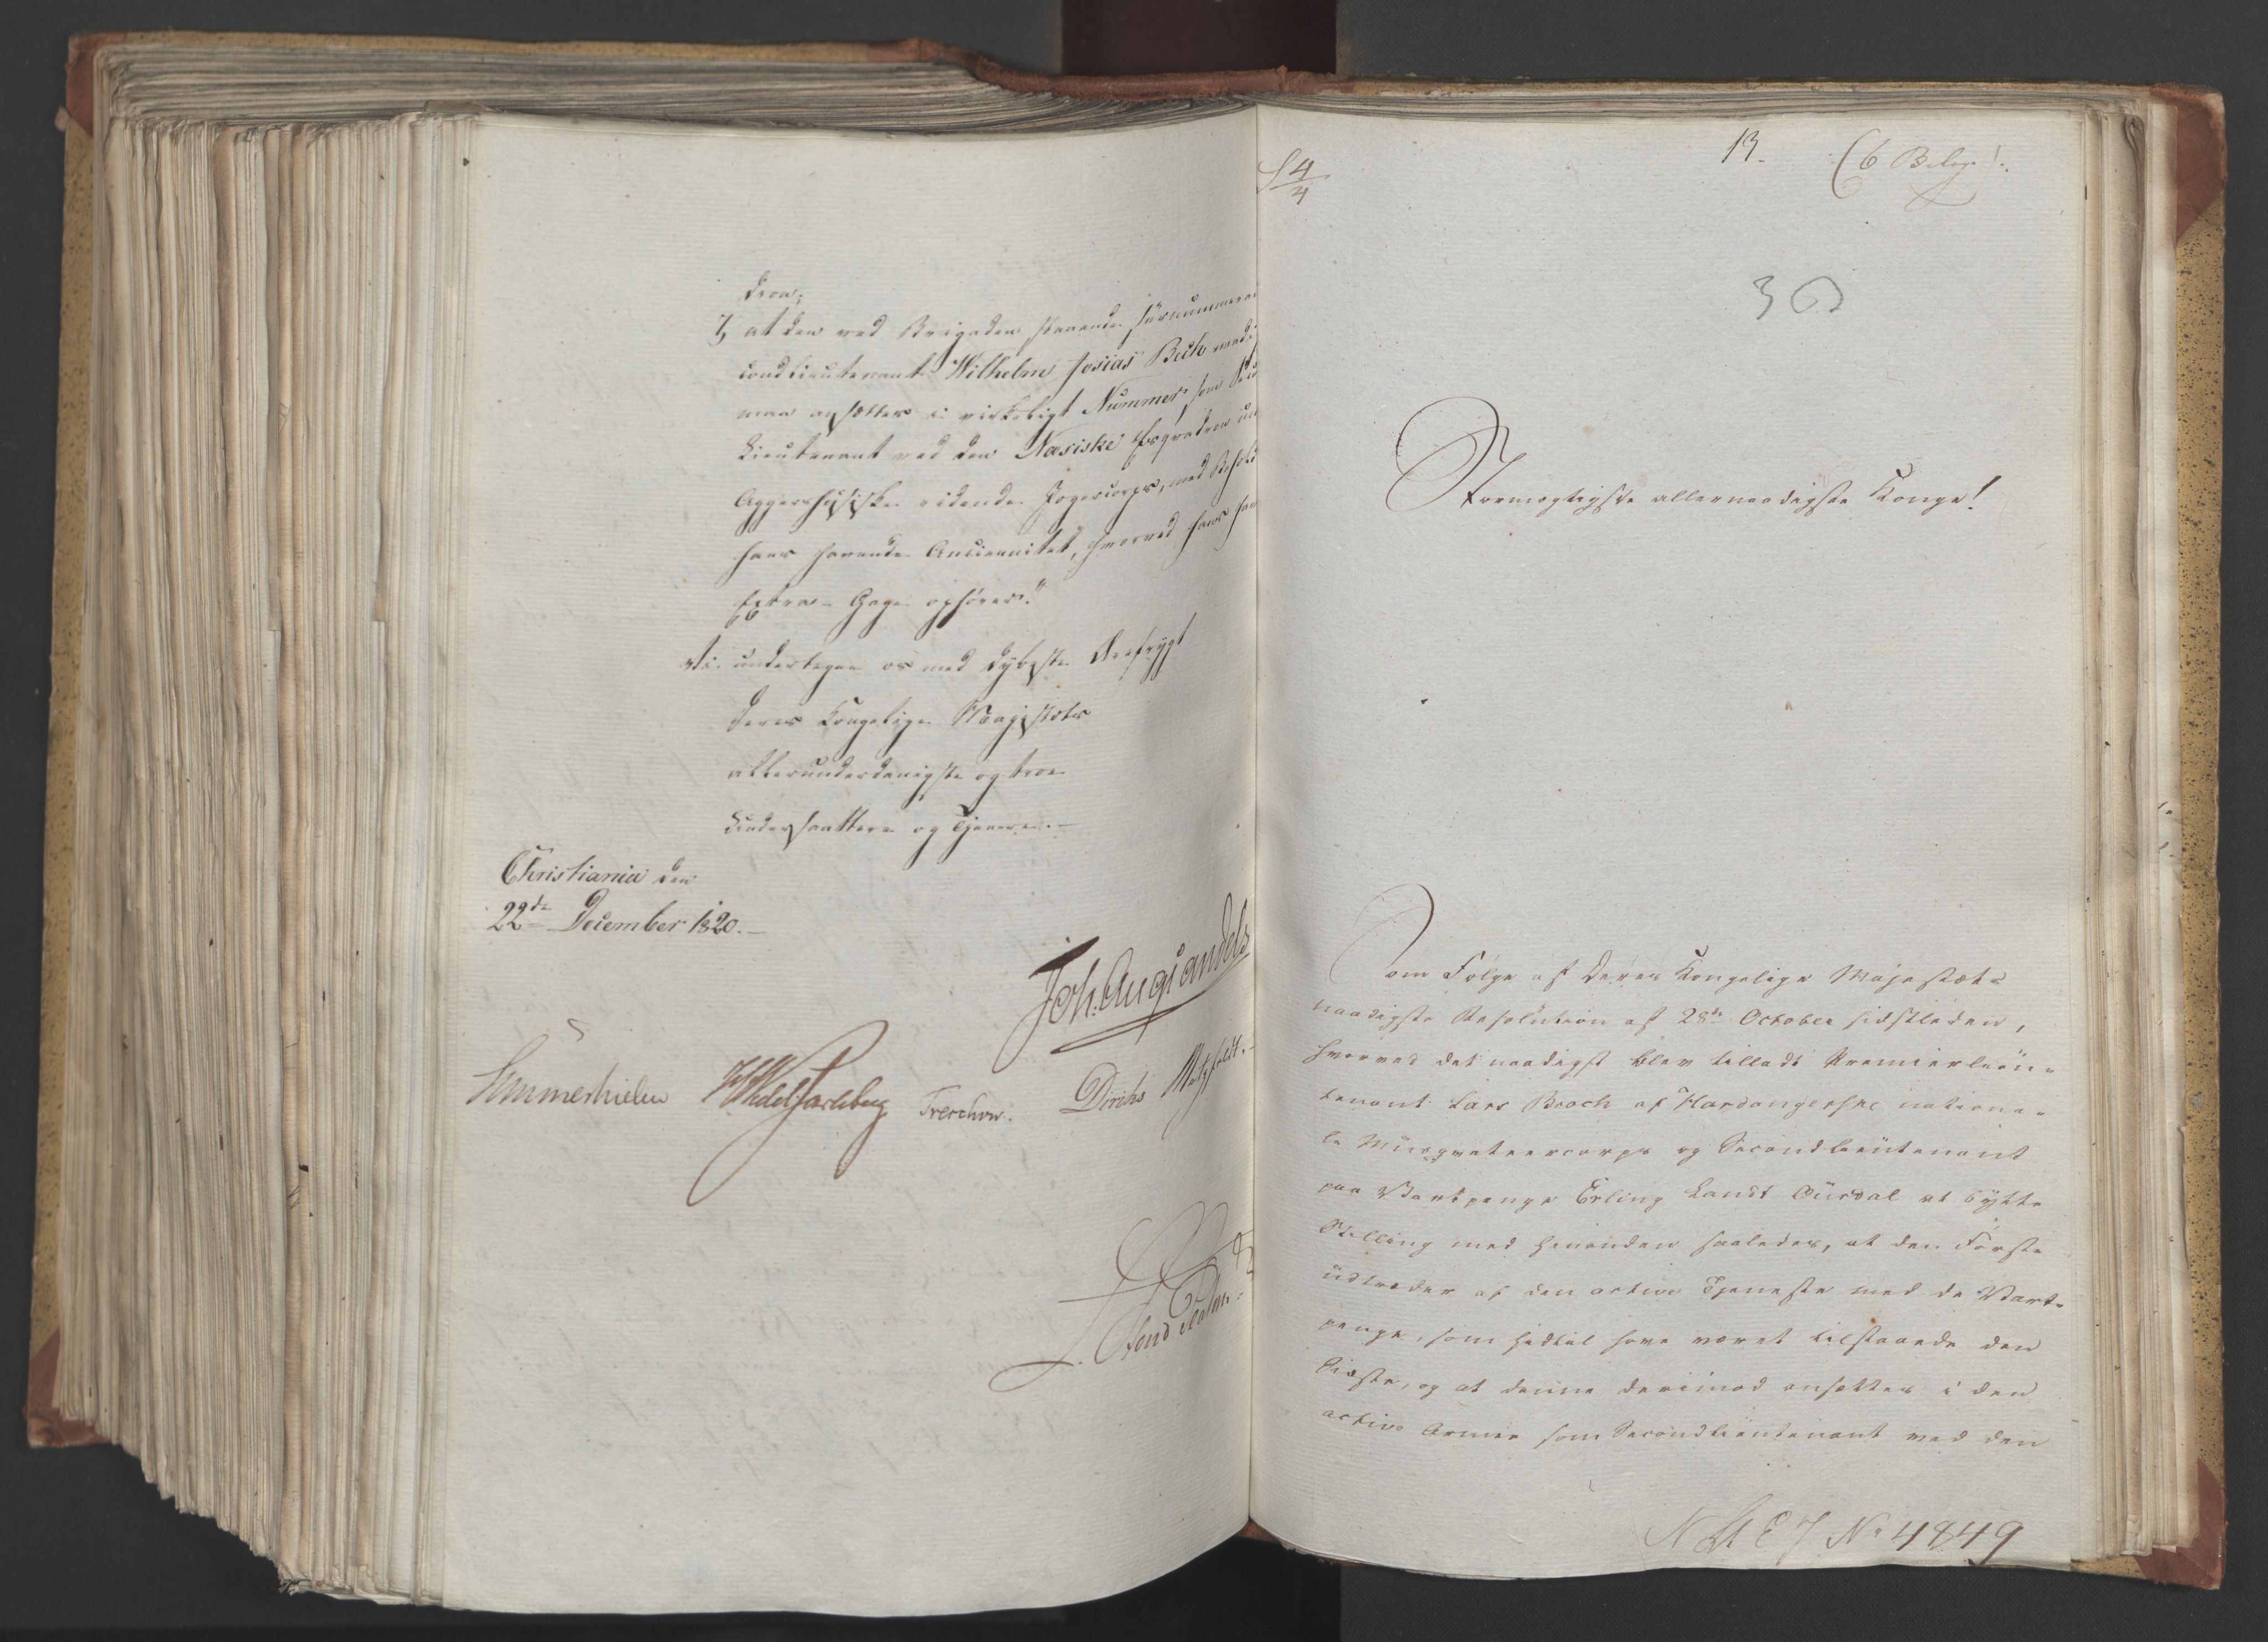 dron;
7, at den ved Brigaden staaende surnummerai
condlieutenant Wilhelm Josias Bech naadi
maa ansættes i virkeligt Nummer som Seco
Lieutenant ved den Næsiske Esqvadron un
Aggershusiske ridende Jægercorps, med Behold
hans havende Anciennitet, hvorved hans hav
Extra-Gage ophører."
Vi undertegne os med dybeste Ærefrygt
Deres Kongelige Majestæts
allerunderdanigste og troe
Undersaattere og Tjenere.
Christiania den
22de December 1820.
Joh. Aug. Sandels
Sommerhielm
Treschow.
Diriks
Motzfeldt.
13. (6 Bilag).
S 4/4
30
Stormægtigste allernaadigste Konge!
Som Følge af Deres Kongelige Majestæts
naadigste Resolution af 28de October sidstleden,
hvorved det naadigst blev tilladt Premierlieu-
tenant Lars Broch af Hardangerske nationa-
le Musqueteercorps og Secondlieutenant
paa Vartpenge Erling Landt Ousdal at bytte
Stilling med hinanden saaledes, at den Første
udtræder af den active Tjeneste med de Vart-
penge, som hidtil have været tilstaaede den
Sidste, og at denne derimod ansættes i den
active Armee som Secondlieutenant ved den
No 4849